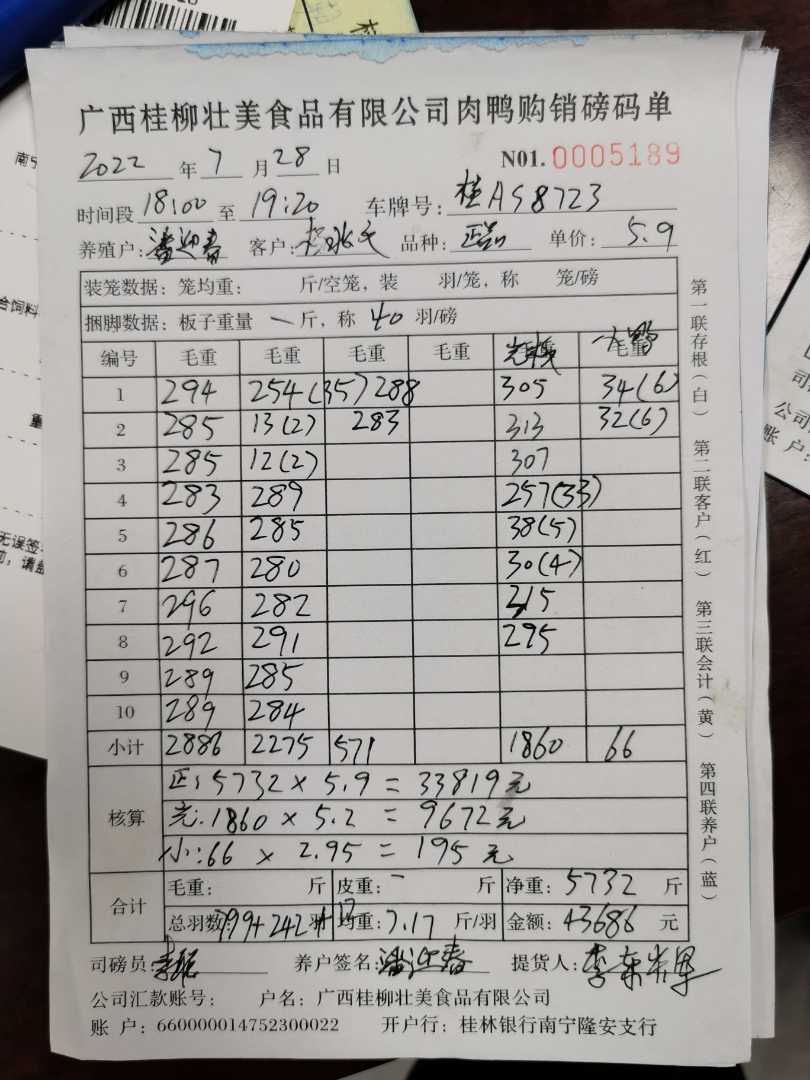 广西桂柳壮美食品有限公司肉鸭购销磅码单
2022 年 7 月 28 日 N01. 0005189
时间段 18:00 至 19:20 车牌号: 桂AS8723
养殖户: 潘迎春 客户: 品种: 正品 单价: 5.9
装笼数据: 笼均重: 斤/空笼, 装 羽/笼, 称 笼/磅
捆脚数据: 板子重量 一 斤, 称 40 羽/磅
编号 毛重 毛重 毛重 毛重
1 294 254(35) 288 305 34(6)
2 285 13(2) 283 313 32(6)
3 285 12(2) 307
4 283 289 257(33)
5 286 285 38(5)
6 287 280 30(4)
7 296 282 315
8 292 291 295
9 289 285
10 289 284
小计 2886 2275 571 1860 66
核算
正: 5732 × 5.9 = 33819元
光: 1860 × 5.2 = 9672元
小: 66 × 2.95 = 195元
合计
毛重: 斤 皮重: - 斤 净重: 5732 斤
总羽数: 799+242+12 羽 均重: 7.17 斤/羽 金额: 43686 元
司磅员: 养户签名: 潘迎春 提货人: 李
公司汇款账号: 户名: 广西桂柳壮美食品有限公司
账 户: 660000014752300022 开户行: 桂林银行南宁隆安支行
第一联存根(白) 第二联客户(红) 第三联会计(黄) 第四联养户(蓝)